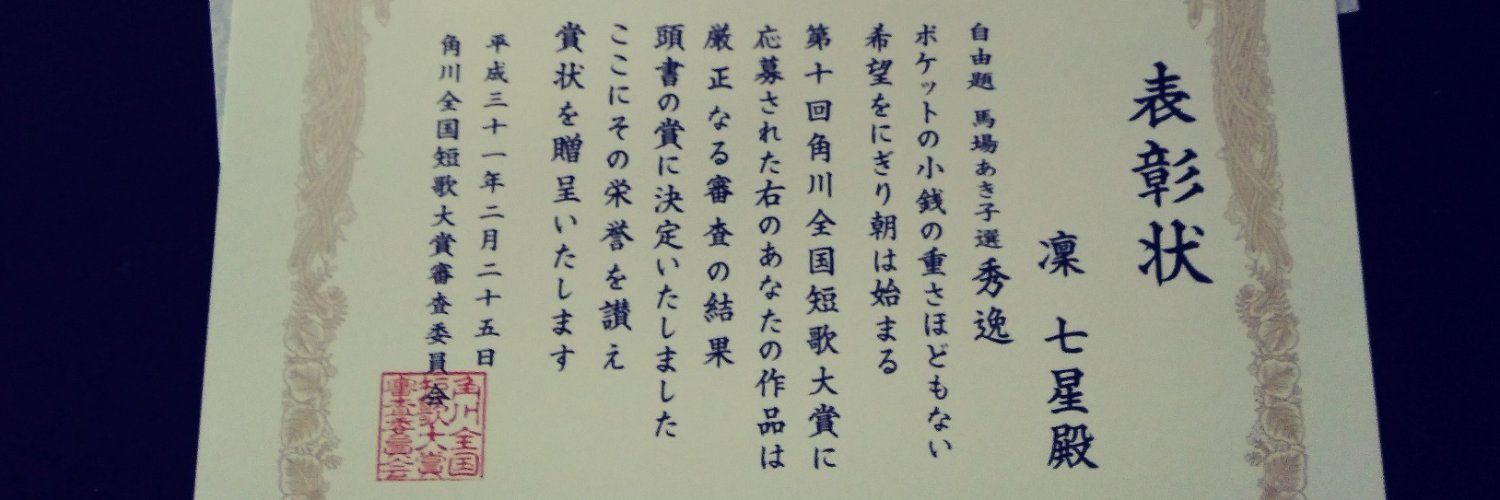 表彰状
凜 七星殿
自由題 馬場あき子選 秀逸
ポケットの小銭の重さほどもない
希望をにぎり朝は始まる
第十回角川全国短歌大賞に
応募された右のあなたの作品は
厳正なる審査の結果
頭書の賞に決定いたしました
ここにその栄誉を讃え
賞状を贈呈いたします
平成三十一年二月二十五日
角川全国短歌大賞審査委員会
角川全国
短歌大賞
審査委員会